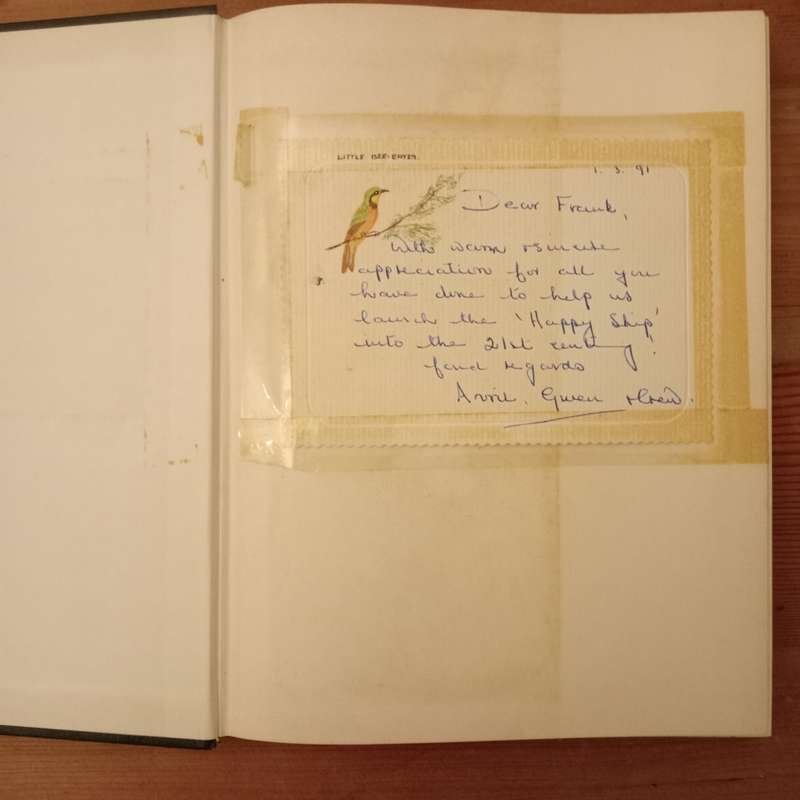 LITTLE BEE-EATER.
1. 3. 91
Dear Frank,
With warm & sincere
appreciation for all you
have done to help us
launch the 'Happy Ship'
into the 21st century!
fond regards
Avril, Gwen & Crew.